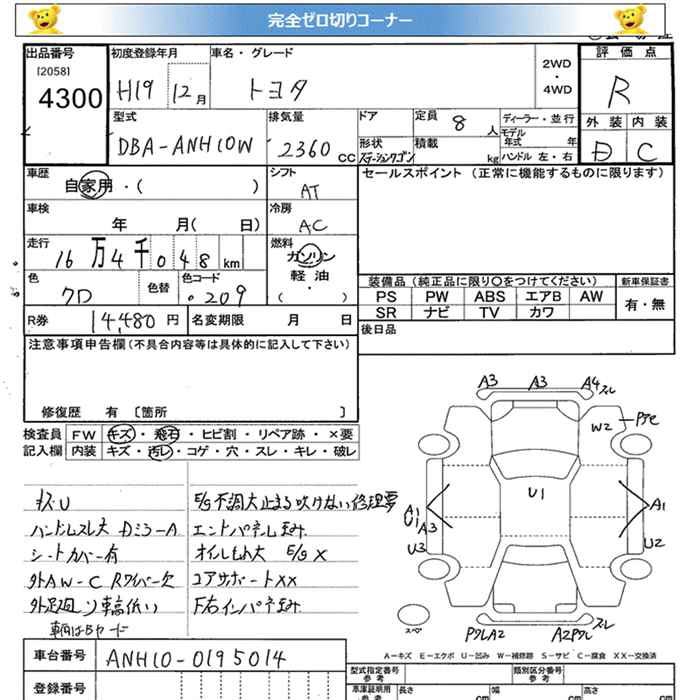 完全ゼロ切りコーナー
出品番号 初度登録年月 車名・グレード 2WD・4WD 評価点
[2058]
4300 H19 12月 トヨタ R
型式 排気量 ドア 定員 8人 ディーラー・並行 外装 内装
DBA-ANH10W 2360 CC 形状 ステーションワゴン 積載 kg モデル年式 年 ハンドル 左・右 D C
車歴 自家用・( ) シフト AT セールスポイント (正常に機能するものに限ります)
車検 年 月( 日) 冷房 AC
走行 16万4千048km 燃料 ガソリン 軽油 ( )
色 クロ 色替 色コード 209
装備品 (純正品に限り○をつけてください) 新車保証書
PS PW ABS エアB AW 有・無
SR ナビ TV カワ
R券 14,480円 名変期限 月 日 後日品
注意事項申告欄 (不具合内容等は具体的に記入して下さい)
修復歴 有 [箇所 ]
検査員 FW キズ・飛石・ヒビ割・リペア跡・×要
記入欄 内装 キズ・汚レ・コゲ・穴・スレ・キレ・破レ
キズU E/g不調大止まる吹けない修理要
ハンドルスレ大 Dミラ-A エンドパネル歪み
シートカバー有 オイルもれ大 E/g X
外AW-C Rワイパー欠 コアサポートXX
外足廻り 輪低い F右インパネ歪み
A3 A3 A4 スレ
W2
U1
A1 U1 A3 A1
U3 U2
スペア
ワレA2 A2ワレ スレ
A-キズ E-エクボ U-凹み W-補修跡 S-サビ C-腐食 XX-交換済
車台番号 ANH10-0195014 型式指定番号 参考 類別区分番号 参考
登録番号 車庫証明用 参考 長さ cm 幅 cm 高さ cm